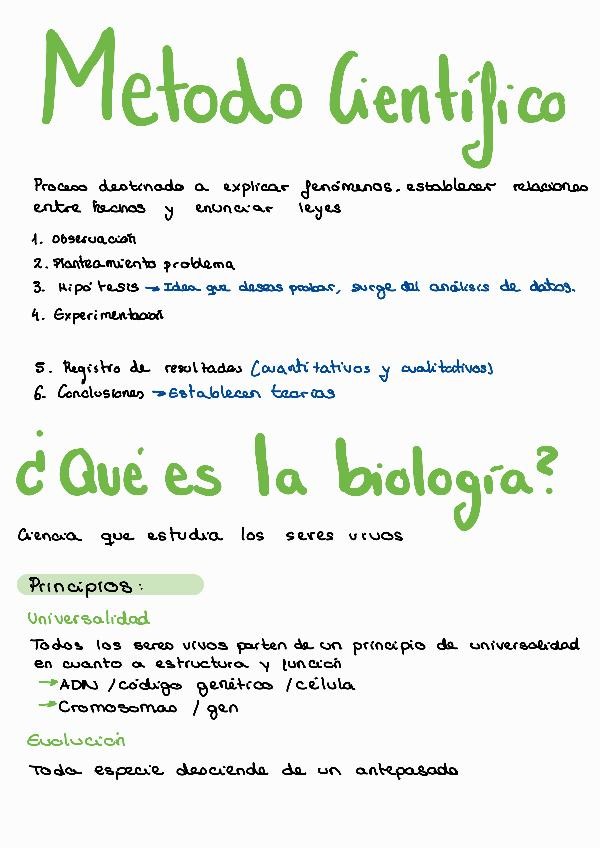 Metodo Científico
Proceso destinado a explicar fenómenos, establecer relaciones
entre hechos y enunciar leyes
1. Observación
2. Planteamiento problema
3. Hipótesis → Idea que deseas probar, surge del análisis de datos.
4. Experimentación
5. Registro de resultados (cuantitativos y cualitativos)
6. Conclusiones → Establecen teorías
¿Qué es la biología?
Ciencia que estudia los seres vivos
Principios:
Universalidad
Todos los seres vivos parten de un principio de universalidad
en cuanto a estructura y función
→ ADN / código genético / célula
→ Cromosomas / gen
Evolución
Toda especie desciende de un antepasado